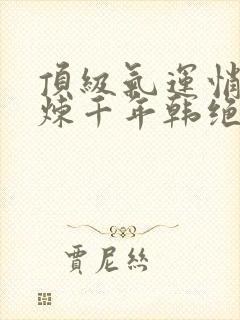 頂級氣運悄
煉千年韩绝
賈尼絲